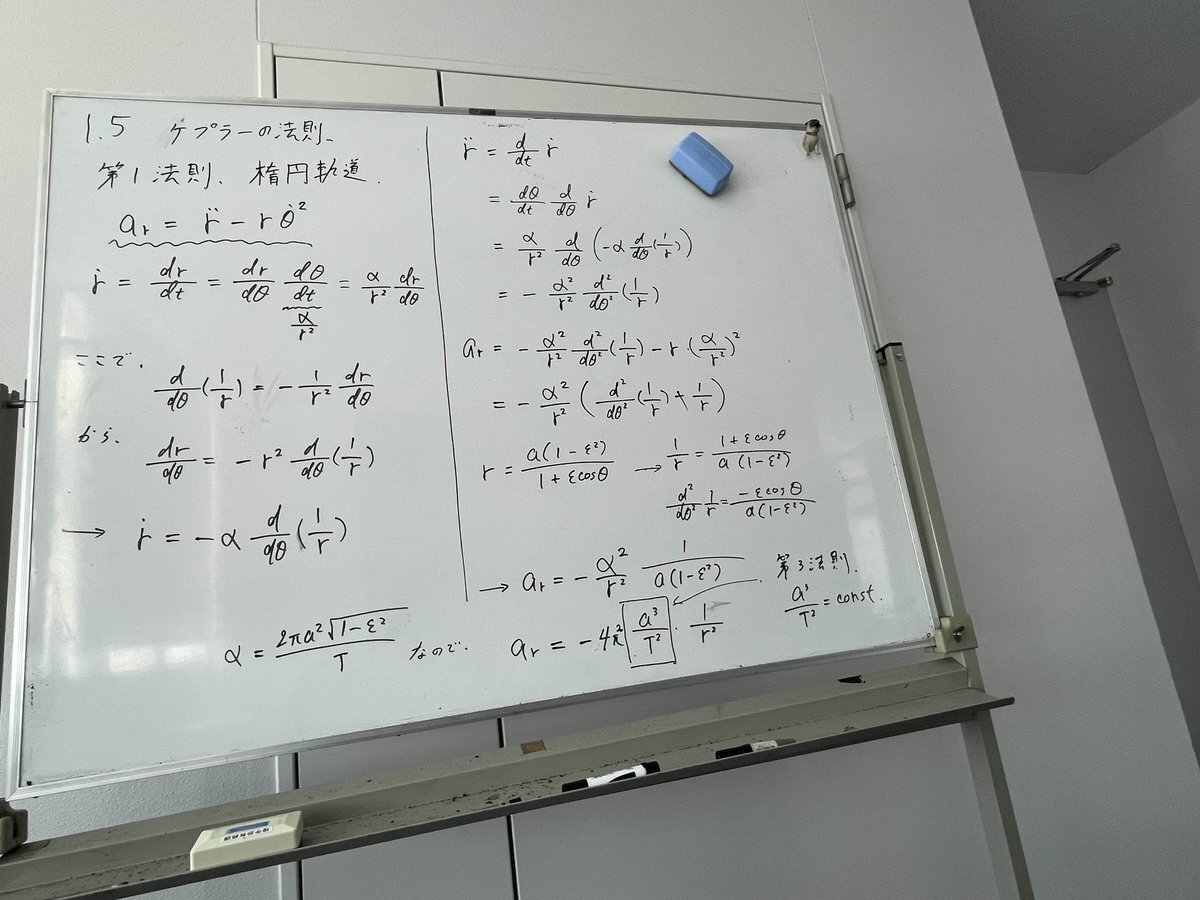 1.5 ケプラーの法則、
第1法則、楕円軌道.
a_r = r̈ − rθ̇²
ṙ = dr/dt = dr/dθ dθ/dt = α/r² dr/dθ
α/r²
ここで、
d/dθ(1/r) = −1/r² dr/dθ
から、
dr/dθ = −r² d/dθ(1/r)
→ ṙ = −α d/dθ(1/r)
α = 2πa²√(1−ε²)/T なので、
r̈ = d/dt ṙ
= dθ/dt d/dθ ṙ
= α/r² d/dθ(−α d/dθ(1/r))
= −α²/r² d²/dθ²(1/r)
a_r = −α²/r² d²/dθ²(1/r) − r·(α/r²)²
= −α²/r² (d²/dθ²(1/r) + 1/r)
r = a(1−ε²)/(1+εcosθ) → 1/r = (1+εcosθ)/(a(1−ε²))
d²/dθ² 1/r = −εcosθ/(a(1−ε²))
→ a_r = −α²/r² 1/(a(1−ε²))
第3法則.
a³/T² = const.
a_r = −4π² a³/T² · 1/r²